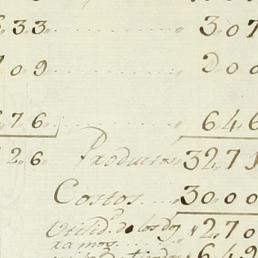 633 ........ 307
709 ........ 200
676 ........ 646
126. Productos 3271
Costos.... 3000
Utilid.s de los dos 270
ramos...... 649